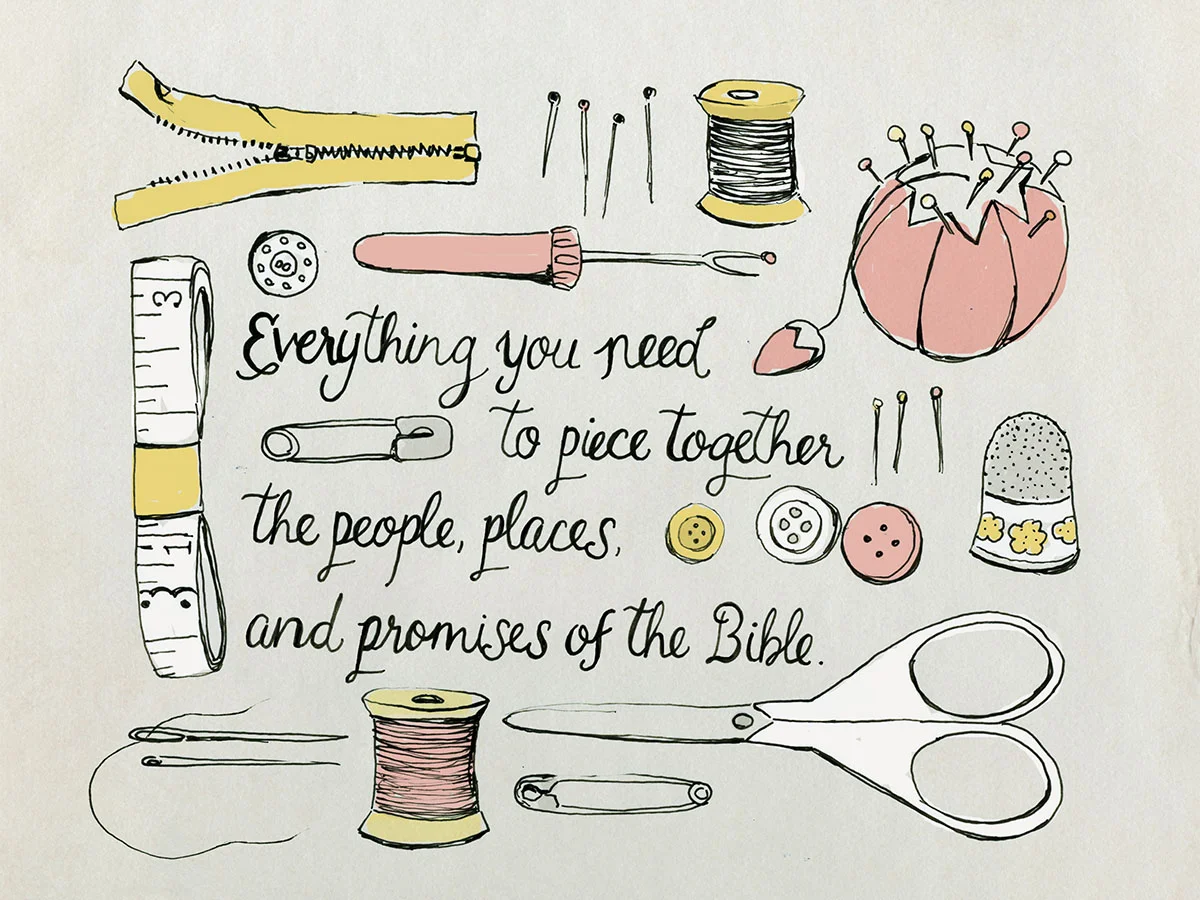 Everything you need
to piece together
the people, places,
and promises of the Bible.
3
1